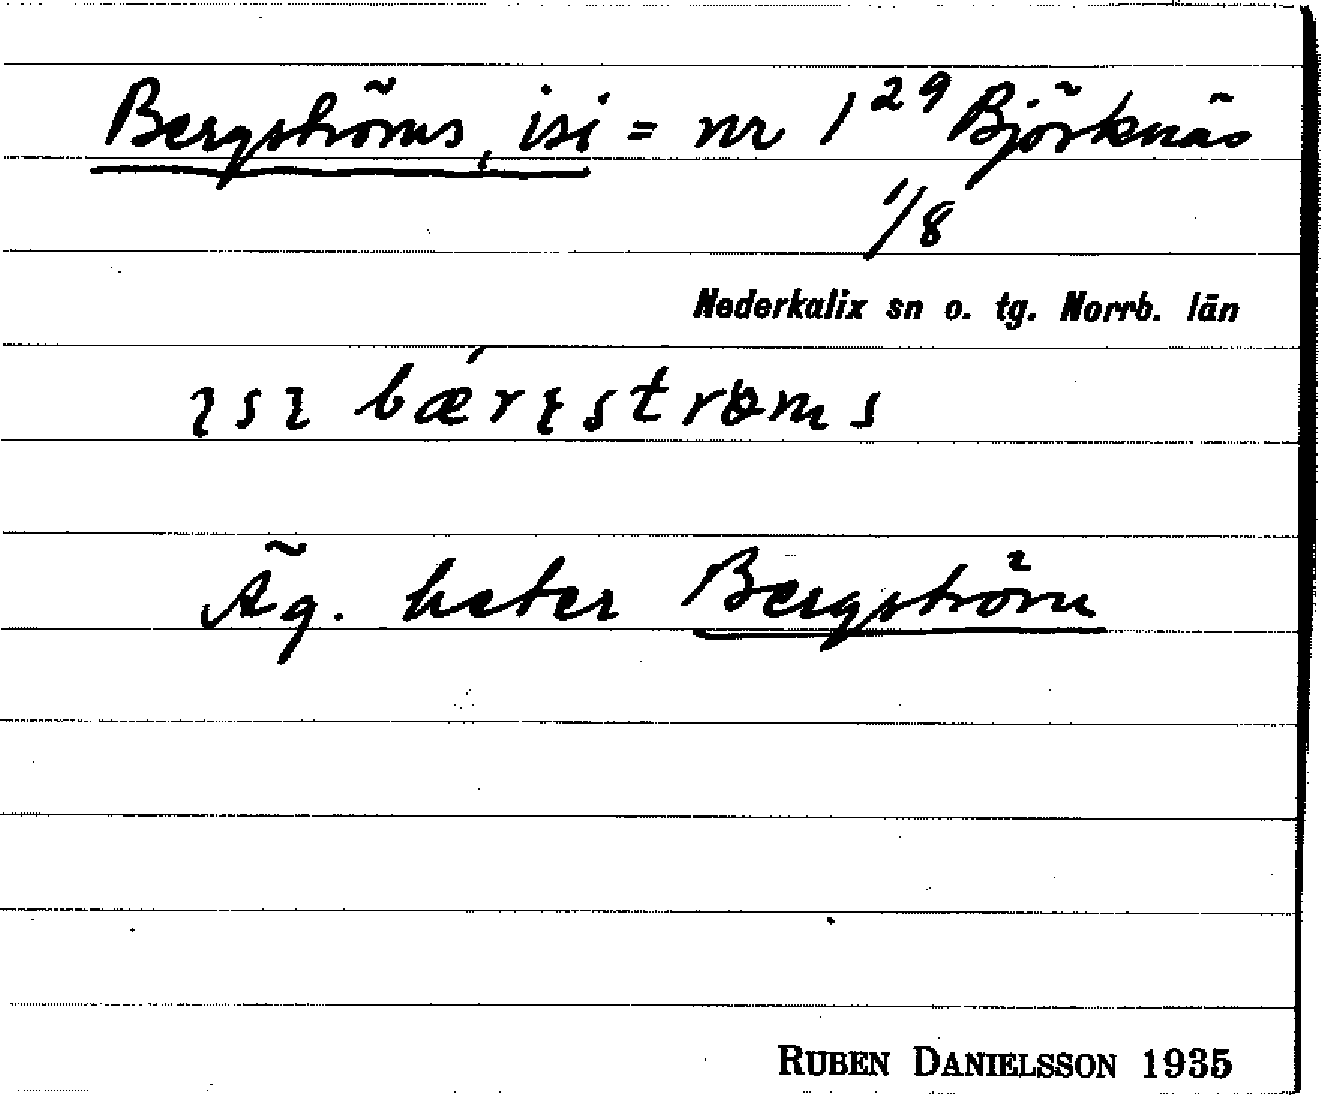 Bergströms, isi = nr 1²⁹ Björknäs
1/8
Nederkalix sn o. tg. Norrb. län
ɿsɿ bǽrgstrøms
Äg. heter Bergström
RUBEN DANIELSSON 1935